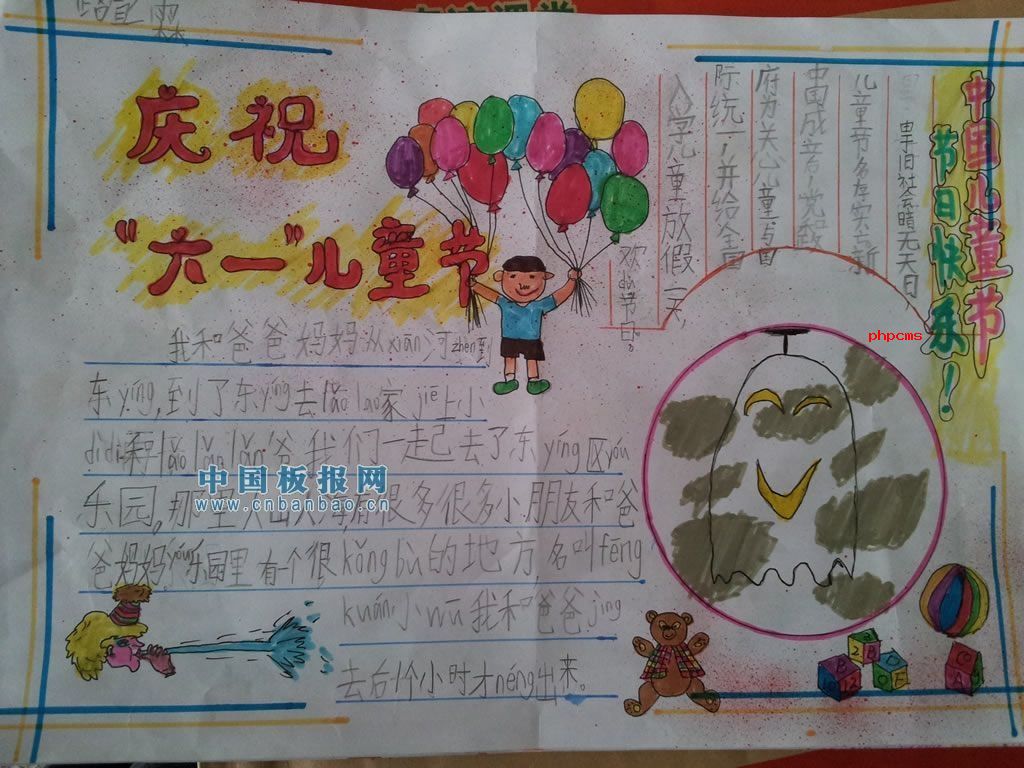 庆祝
“六一”儿童节
我和爸爸妈妈从xiān河zhèn到
东yíng,到了东yíng去lǎo lao家jiē上小
dìdi和lǎo lao lǎo爷我们一起去了东yíng区yóu
乐园,那里人山人海有很多很多小朋友和爸
爸妈妈,yóu乐园里有一个很kǒng bù的地方,名叫fēng
kuáng小wū我和爸爸jìng
去后1个小时才néng出来。
中国儿童节
节日快乐!
旧社会暗无天日,
儿童节名存实亡新
中国成立!党政
府为关心儿童与国
际统一!并给全国
入学儿童放假一天,
欢dù节日。
phpcms
中国板报网
www.cnbanbao.cn